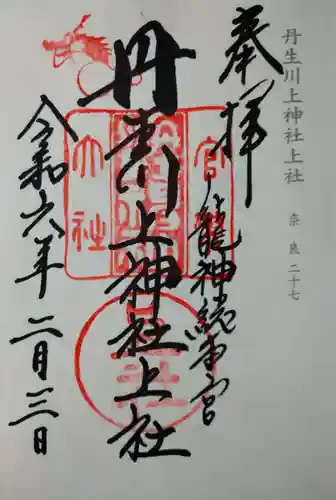 丹生川上神社上社 奈良二十七
奉拝
龍神総本宮
丹生川上神社上社
令和六年二月三日
官
大社